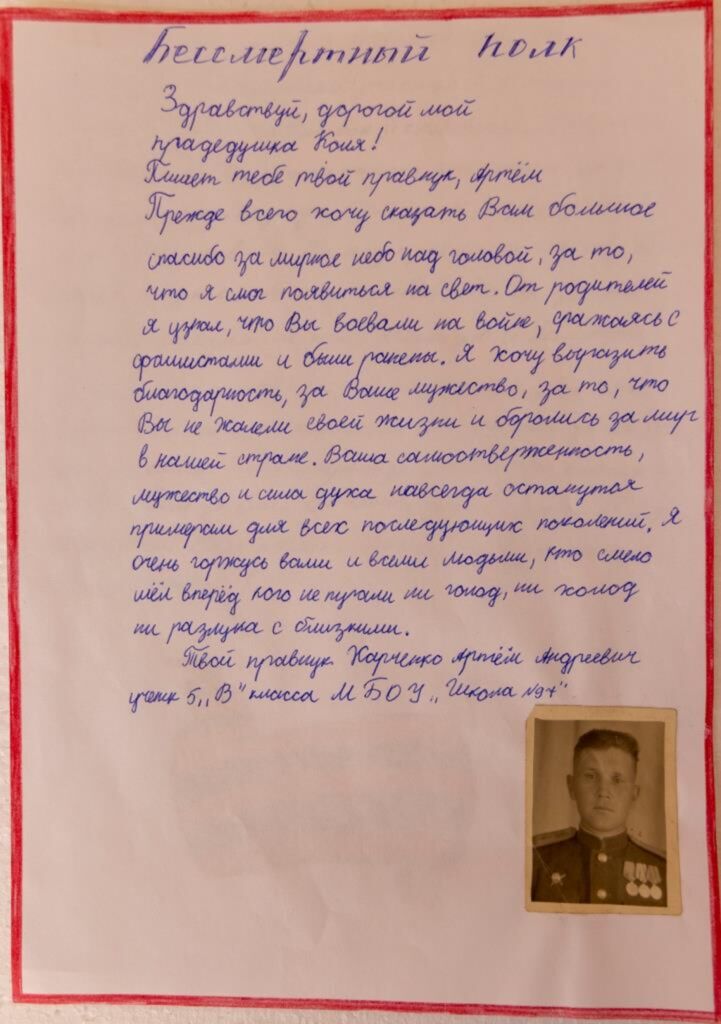 Бессмертный полк
Здравствуй, дорогой мой
прадедушка Коля!
Пишет тебе твой правнук, Артём
Прежде всего хочу сказать Вам большое
спасибо за мирное небо над головой, за то,
что я смог появиться на свет. От родителей
я узнал, что Вы воевали на войне, сражаясь с
фашистами и были ранены. Я хочу выразить
благодарность, за Ваше мужество, за то, что
Вы не жалели своей жизни и боролись за мир
в нашей стране. Ваша самоотверженность,
мужество и сила духа навсегда останутся
примерам для всех последующих поколений. Я
очень горжусь вами и всеми людьми, кто смело
шёл вперёд кого не пугали ни голод, ни холод
ни разлука с близкими.
Твой правнук Харченко Артём Андреевич
ученик 5 „В" класса МБОУ „Школа №97"